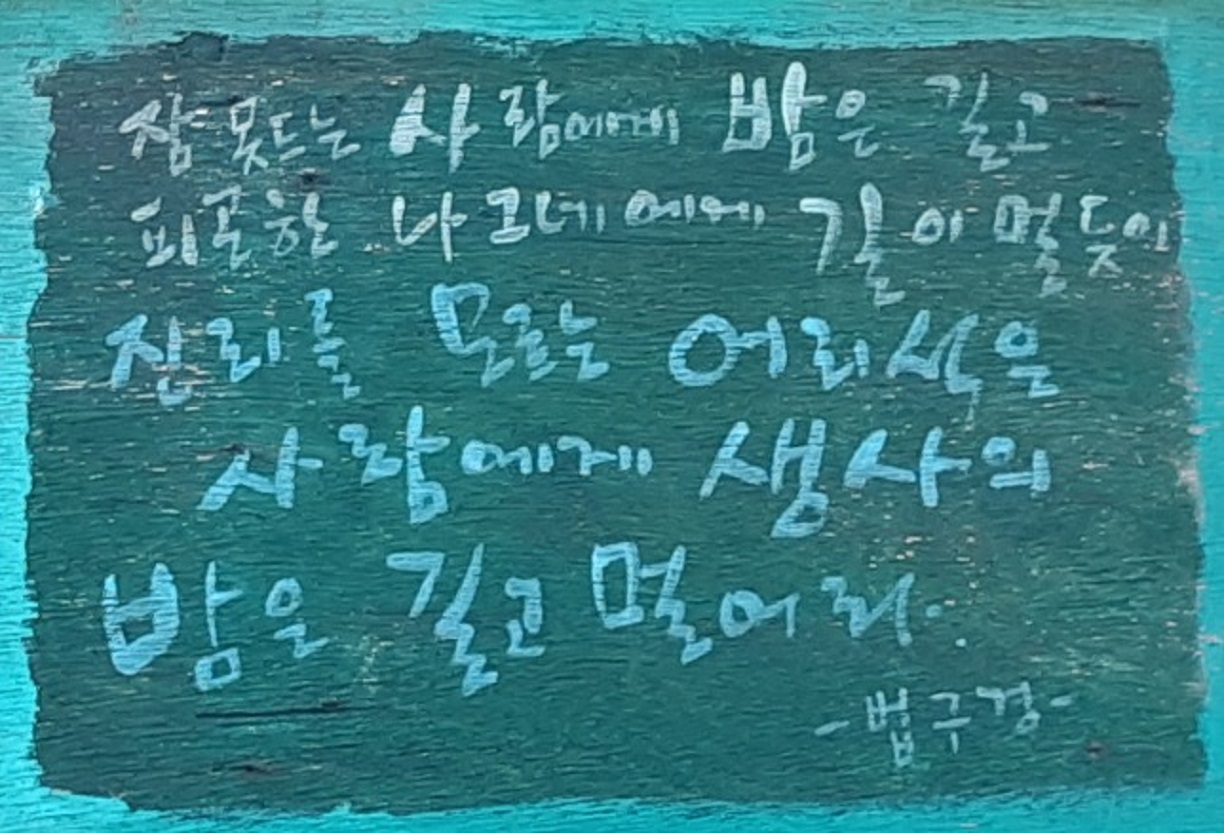 잠 못드는 사람에게 밤은 길고
피곤한 나그네에게 길이 멀듯이
진리를 모르는 어리석은
사람에게 생사의
밤은 길고 멀어라.
-법구경-